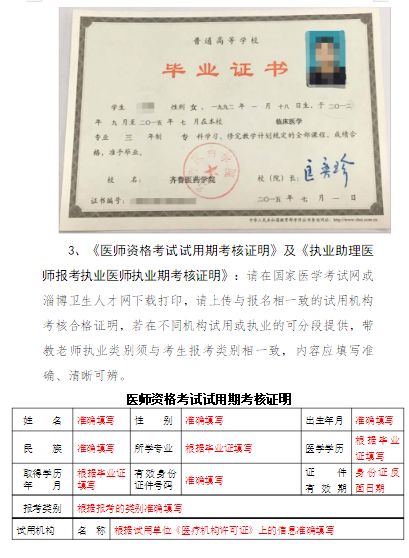 普通高等学校
毕业证书
学生 性别 女，一九九二年 一 月 十八 日生，于二〇一二
年 九 月至二〇一五 年 七 月在本校 临床医学
专业 三 年制 专 科学习，修完教学计划规定的全部课程，成绩合
格，准予毕业。
校 名： 齐鲁医药学院 校（院）长：
证书编号： 二〇一五年 七 月 一 日
3、《医师资格考试试用期考核证明》及《执业助理医
师报考执业医师执业期考核证明》：请在国家医学考试网或
淄博卫生人才网下载打印，请上传与报名相一致的试用机构
考核合格证明，若在不同机构试用或执业的可分段提供，带
教老师执业类别须与考生报考类别相一致，内容应填写准
确、清晰可辨。
医师资格考试试用期考核证明
姓 名 准确填写 性 别 准确填写 出生年月 准确填写
民 族 准确填写 所学专业 根据毕业证填写 医学学历 根据毕业证填写
取得学历年 月 根据毕业证填写 有效身份证件号码 准确填写 证 件有效期 身份证反面日期
报考类别 根据报考的类别准确填写
试用机构 名 称 根据试用单位《医疗机构许可证》上的信息准确填写